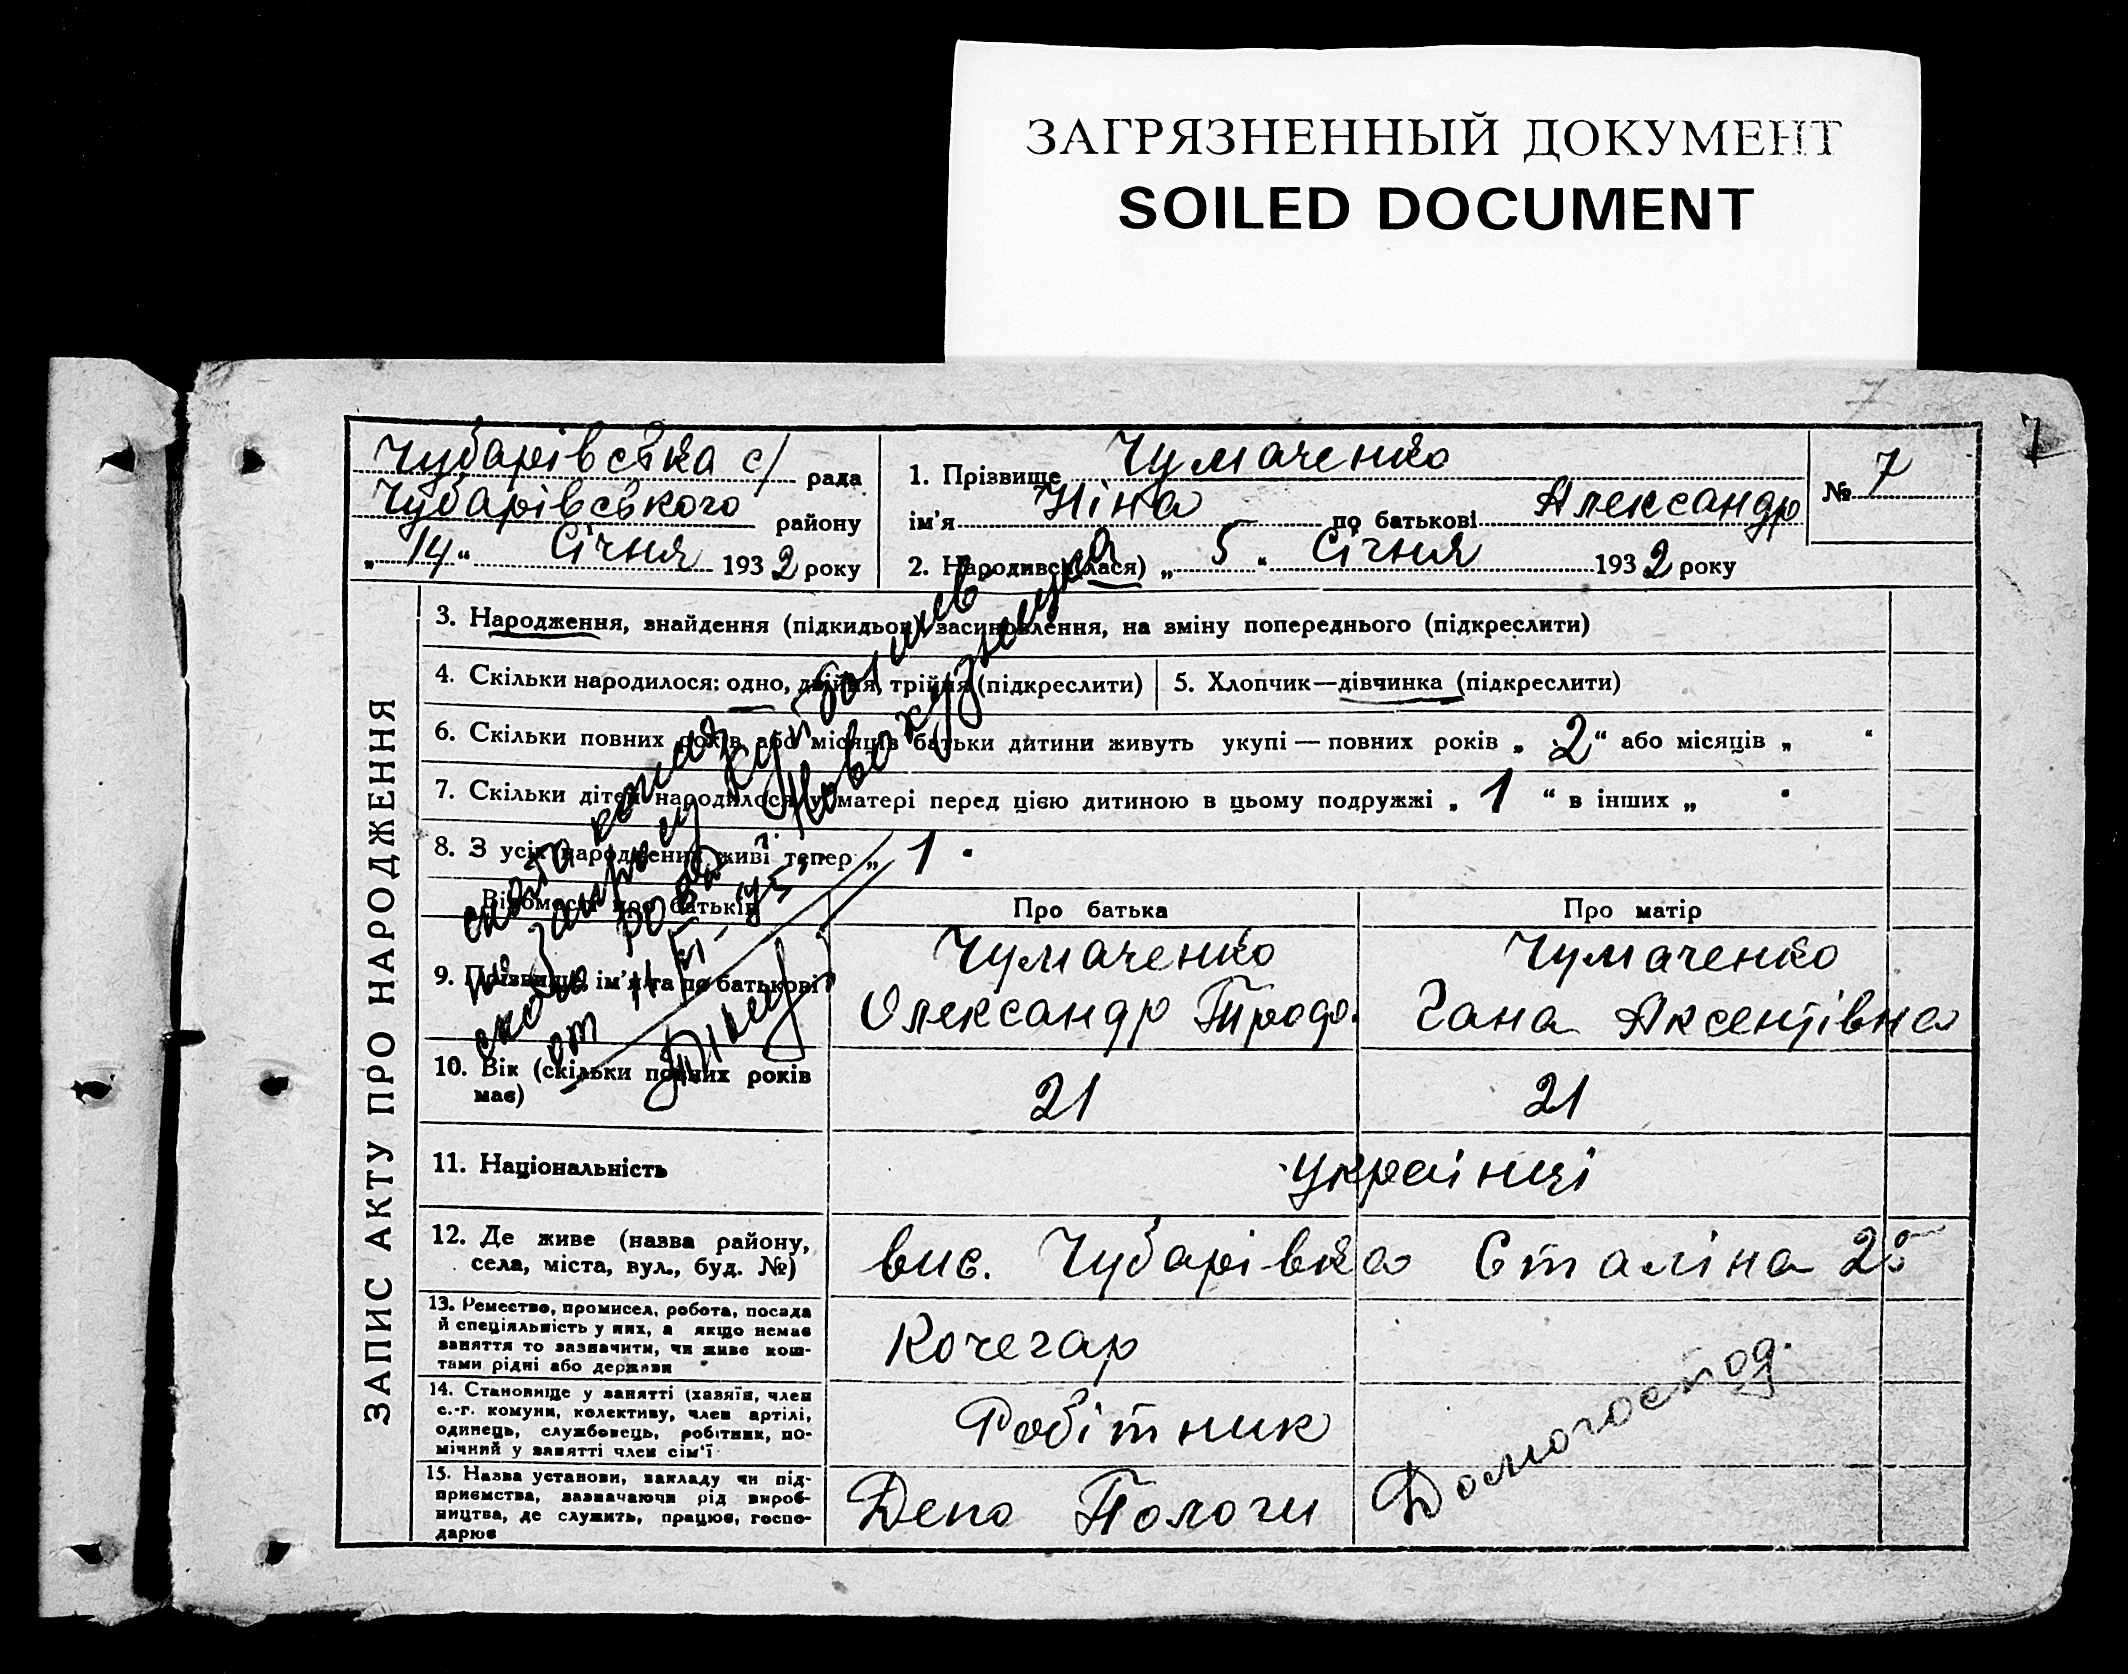 ЗАГРЯЗНЕННЫЙ ДОКУМЕНТ
SOILED DOCUMENT
7
7
Чубарівська с/ рада
Чубарівського району
„ 14 “ Січня 1932 року
1. Прізвище Чумаченко
ім'я Ніна по батькові Александр
2. Народився (лася) „ 5 “ Січня 1932 року
№ 7
ЗАПИС АКТУ ПРО НАРОДЖЕННЯ
3. Народження, знайдення (підкидьок), засиновлення, на зміну попереднього (підкреслити)
4. Скільки народилося: одно, двійня, трійня (підкреслити)
5. Хлопчик—дівчинка (підкреслити)
6. Скільки повних років або місяців батьки дитини живуть укупі — повних років „ 2 “ або місяців „ “
7. Скільки дітей народилося у матері перед цією дитиною в цьому подружжі „ 1 “ в інших „ “
8. З усіх народжених живі тепер „ 1
снята копия
по запросу Куйбышев
от 11/5-45
Відомості про батьків
Про батька
Про матір
9. Прізвище, ім'я та по батькові
Чумаченко
Олександр Трофо.
Чумаченко
Гана Аксентівна
10. Вік (скільки повних років
має)
21
21
11. Національність
українці
12. Де живе (назва району,
села, міста, вул., буд. №)
вис. Чубарівка Сталіна 25
13. Ремество, промисел, робота, посада
й спеціяльність у них, а якщо немає
заняття то зазначити, чи живе кош-
тами рідні або держави
Кочегар
14. Становище у занятті (хазяїн, член
с.-г. комуни, колективу, член артілі,
одинець, службовець, робітник, по-
мічний у занятті член сім'ї
Робітник
15. Назва установи, закладу чи під-
приємства, зазначаючи рід вироб-
ництва, де служить, працює, госпо-
дарює
Депо Пологи
Домогоспод.